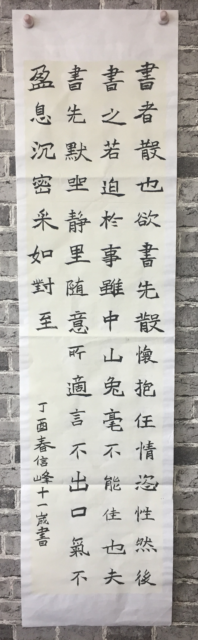 書者散也欲書先散懷抱任情恣性然後
書之若迫於事雖中山兔毫不能佳也夫
書先默坐静里随意所適言不出口氣不
盈息沉密采如對至
丁酉春信峰十一歲書